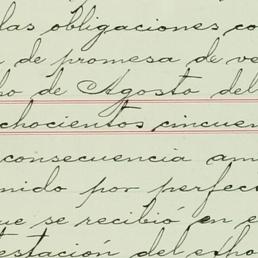 las obligaciones co
de promesa de ve
ho de Agosto del
chocientos cincuen
consecuencia am
nido por perfec
ue se recibió en e
testación del esho